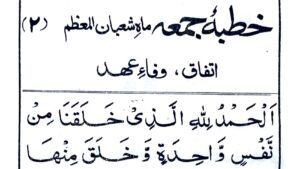 خطبۂ جمعہ ماہِ شعبان المعظم (۲)
اتفاق، وفاءِ عہد
اَلْحَمْدُ لِلّٰہِ الَّذِیْ خَلَقَنَا مِنْ
نَّفْسٍ وَّاحِدَةٍ وَّخَلَقَ مِنْهَا